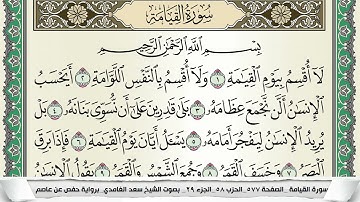 سُورَةُ القِيَامَةِ
بِسْمِ اللَّهِ الرَّحْمَٰنِ الرَّحِيمِ
لَا أُقْسِمُ بِيَوْمِ الْقِيَامَةِ ١ وَلَا أُقْسِمُ بِالنَّفْسِ اللَّوَّامَةِ ٢ أَيَحْسَبُ
الْإِنسَانُ أَلَّن نَّجْمَعَ عِظَامَهُ ٣ بَلَىٰ قَادِرِينَ عَلَىٰ أَن نُّسَوِّيَ بَنَانَهُ ٤ بَلْ
يُرِيدُ الْإِنسَانُ لِيَفْجُرَ أَمَامَهُ ٥ يَسْأَلُ أَيَّانَ يَوْمُ الْقِيَامَةِ ٦ فَإِذَا بَرِقَ
الْبَصَرُ ٧ وَخَسَفَ الْقَمَرُ ٨ وَجُمِعَ الشَّمْسُ وَالْقَمَرُ ٩ يَقُولُ الْإِنسَانُ
سورة القيامة_ الصفحة ٥٧٧_ الحزب ٥٨_ الجزء ٢٩_ بصوت الشيخ سعد الغامدي_ برواية حفص عن عاصم